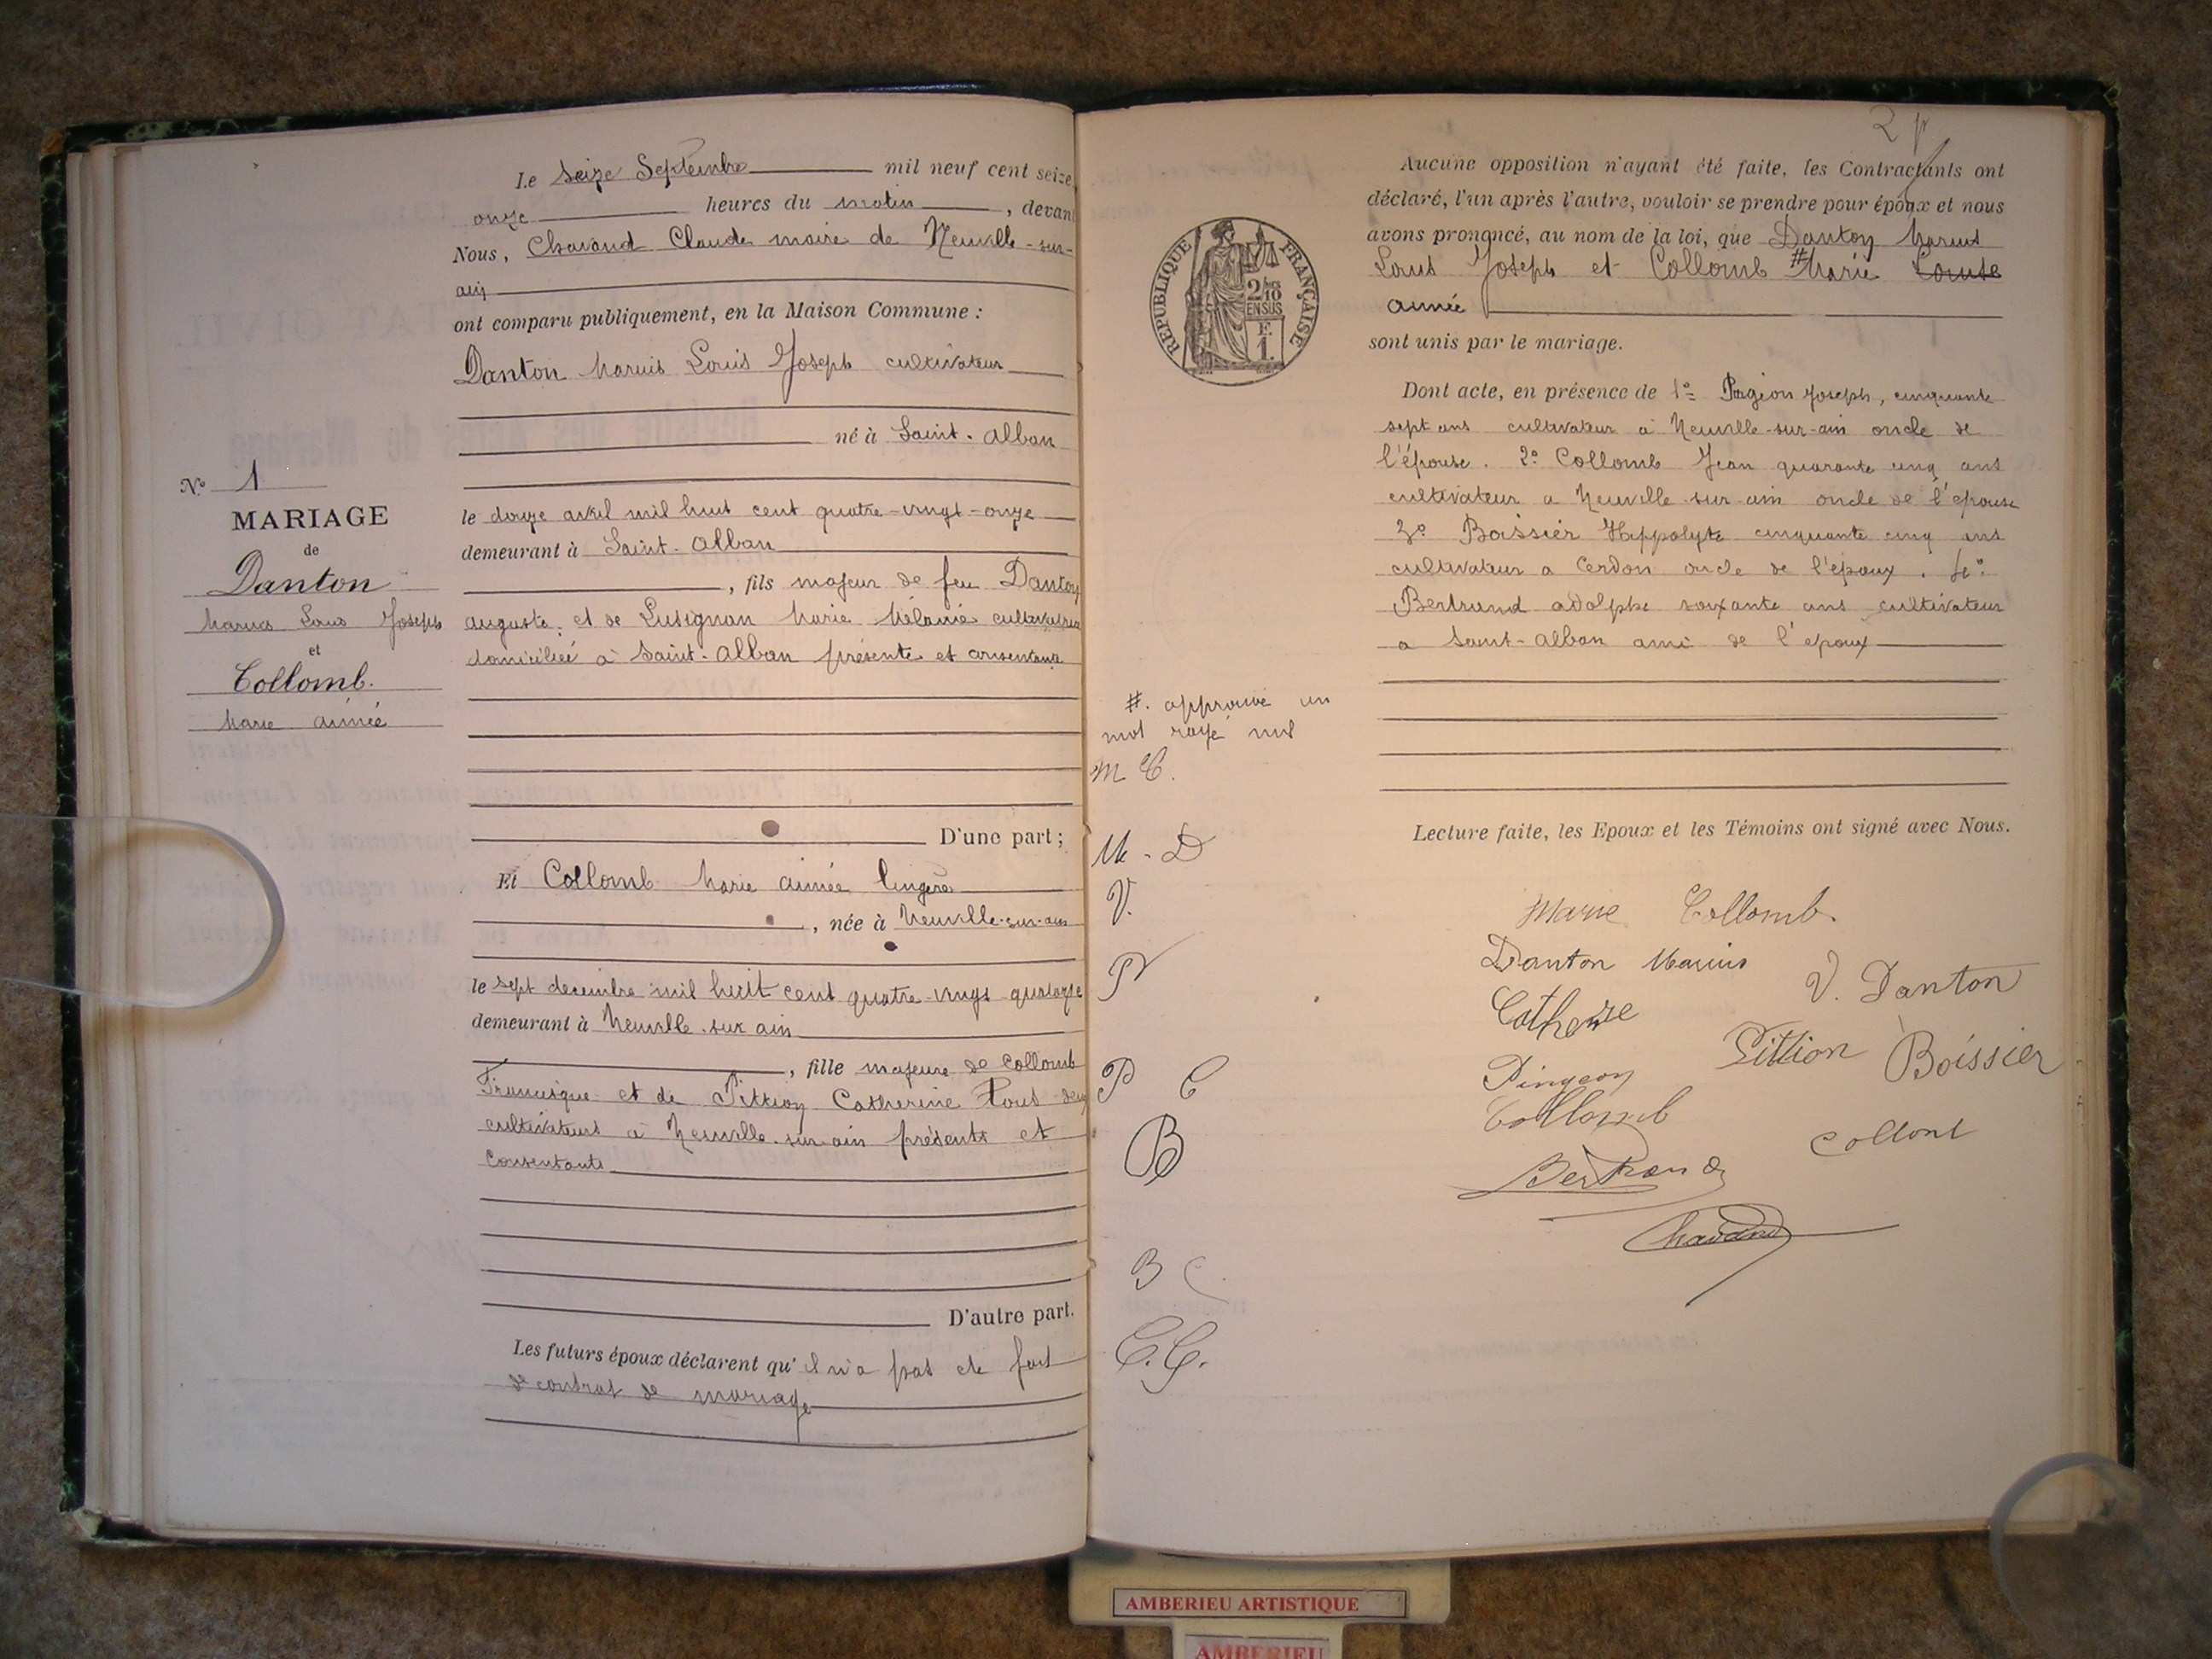 Le seize Septembre mil neuf cent seize
onze heures du matin, devant
Nous, Chavand Claude maire de Neuville-sur-
ain
ont comparu publiquement, en la Maison Commune :
Danton Marius Louis Joseph cultivateur
né à Saint-Alban
le douze avril mil huit cent quatre-vingt-onze
demeurant à Saint-Alban
, fils majeur de feu Danton
auguste, et de Lusignan Marie Mélanie cultivatrice
domiciliée à Saint-Alban présente et consentante
D'une part ;
Et Collomb Marie aimée lingère
, née à Neuville-sur-ain
le sept decembre mil huit cent quatre-vingt quatorze
demeurant à Neuville-sur ain
, fille majeure de Collomb
Francisque et de Pittion Catherine Tous deux
cultivateurs a Neuville-sur-ain présents et
consentants
D'autre part.
Les futurs époux déclarent qu'il n'a pas ete fait
de contrat de mariage
N° 1
MARIAGE
de
Danton
Marius Louis Joseph
et
Collomb.
Marie aimée
2
Aucune opposition n'ayant été faite, les Contractants ont
déclaré, l'un après l'autre, vouloir se prendre pour époux et nous
avons prononcé, au nom de la loi, que Danton Marius
Louis Joseph et Collomb # Marie Louise
aimée
sont unis par le mariage.
Dont acte, en présence de 1° Pingeon Joseph, cinquante
sept ans cultivateur a Neuville-sur-ain oncle de
l'épouse. 2° Collomb Jean quarante cinq ans
cultivateur a Neuville-sur-ain oncle de l'epouse
3° Boissier Hippolyte cinquante cinq ans
cultivateur a Cerdon oncle de l'époux. 4°
Bertrand adolphe soixante ans cultivateur
a Saint-Alban ami de l'epoux
Lecture faite, les Epoux et les Témoins ont signé avec Nous.
REPUBLIQUE FRANÇAISE
2/10
EN SUS
F.
1.
#. approuvé un
mot rayé nul
M C.
M. D
V.
P
P C
B
B C.
C. C.
Marie Collomb.
Danton Marius
V. Danton
Catherine
Pittion
Boissier
Pingeon
Collomb
Collont
Bertrand
Chavand
AMBERIEU ARTISTIQUE
AMBERIEU